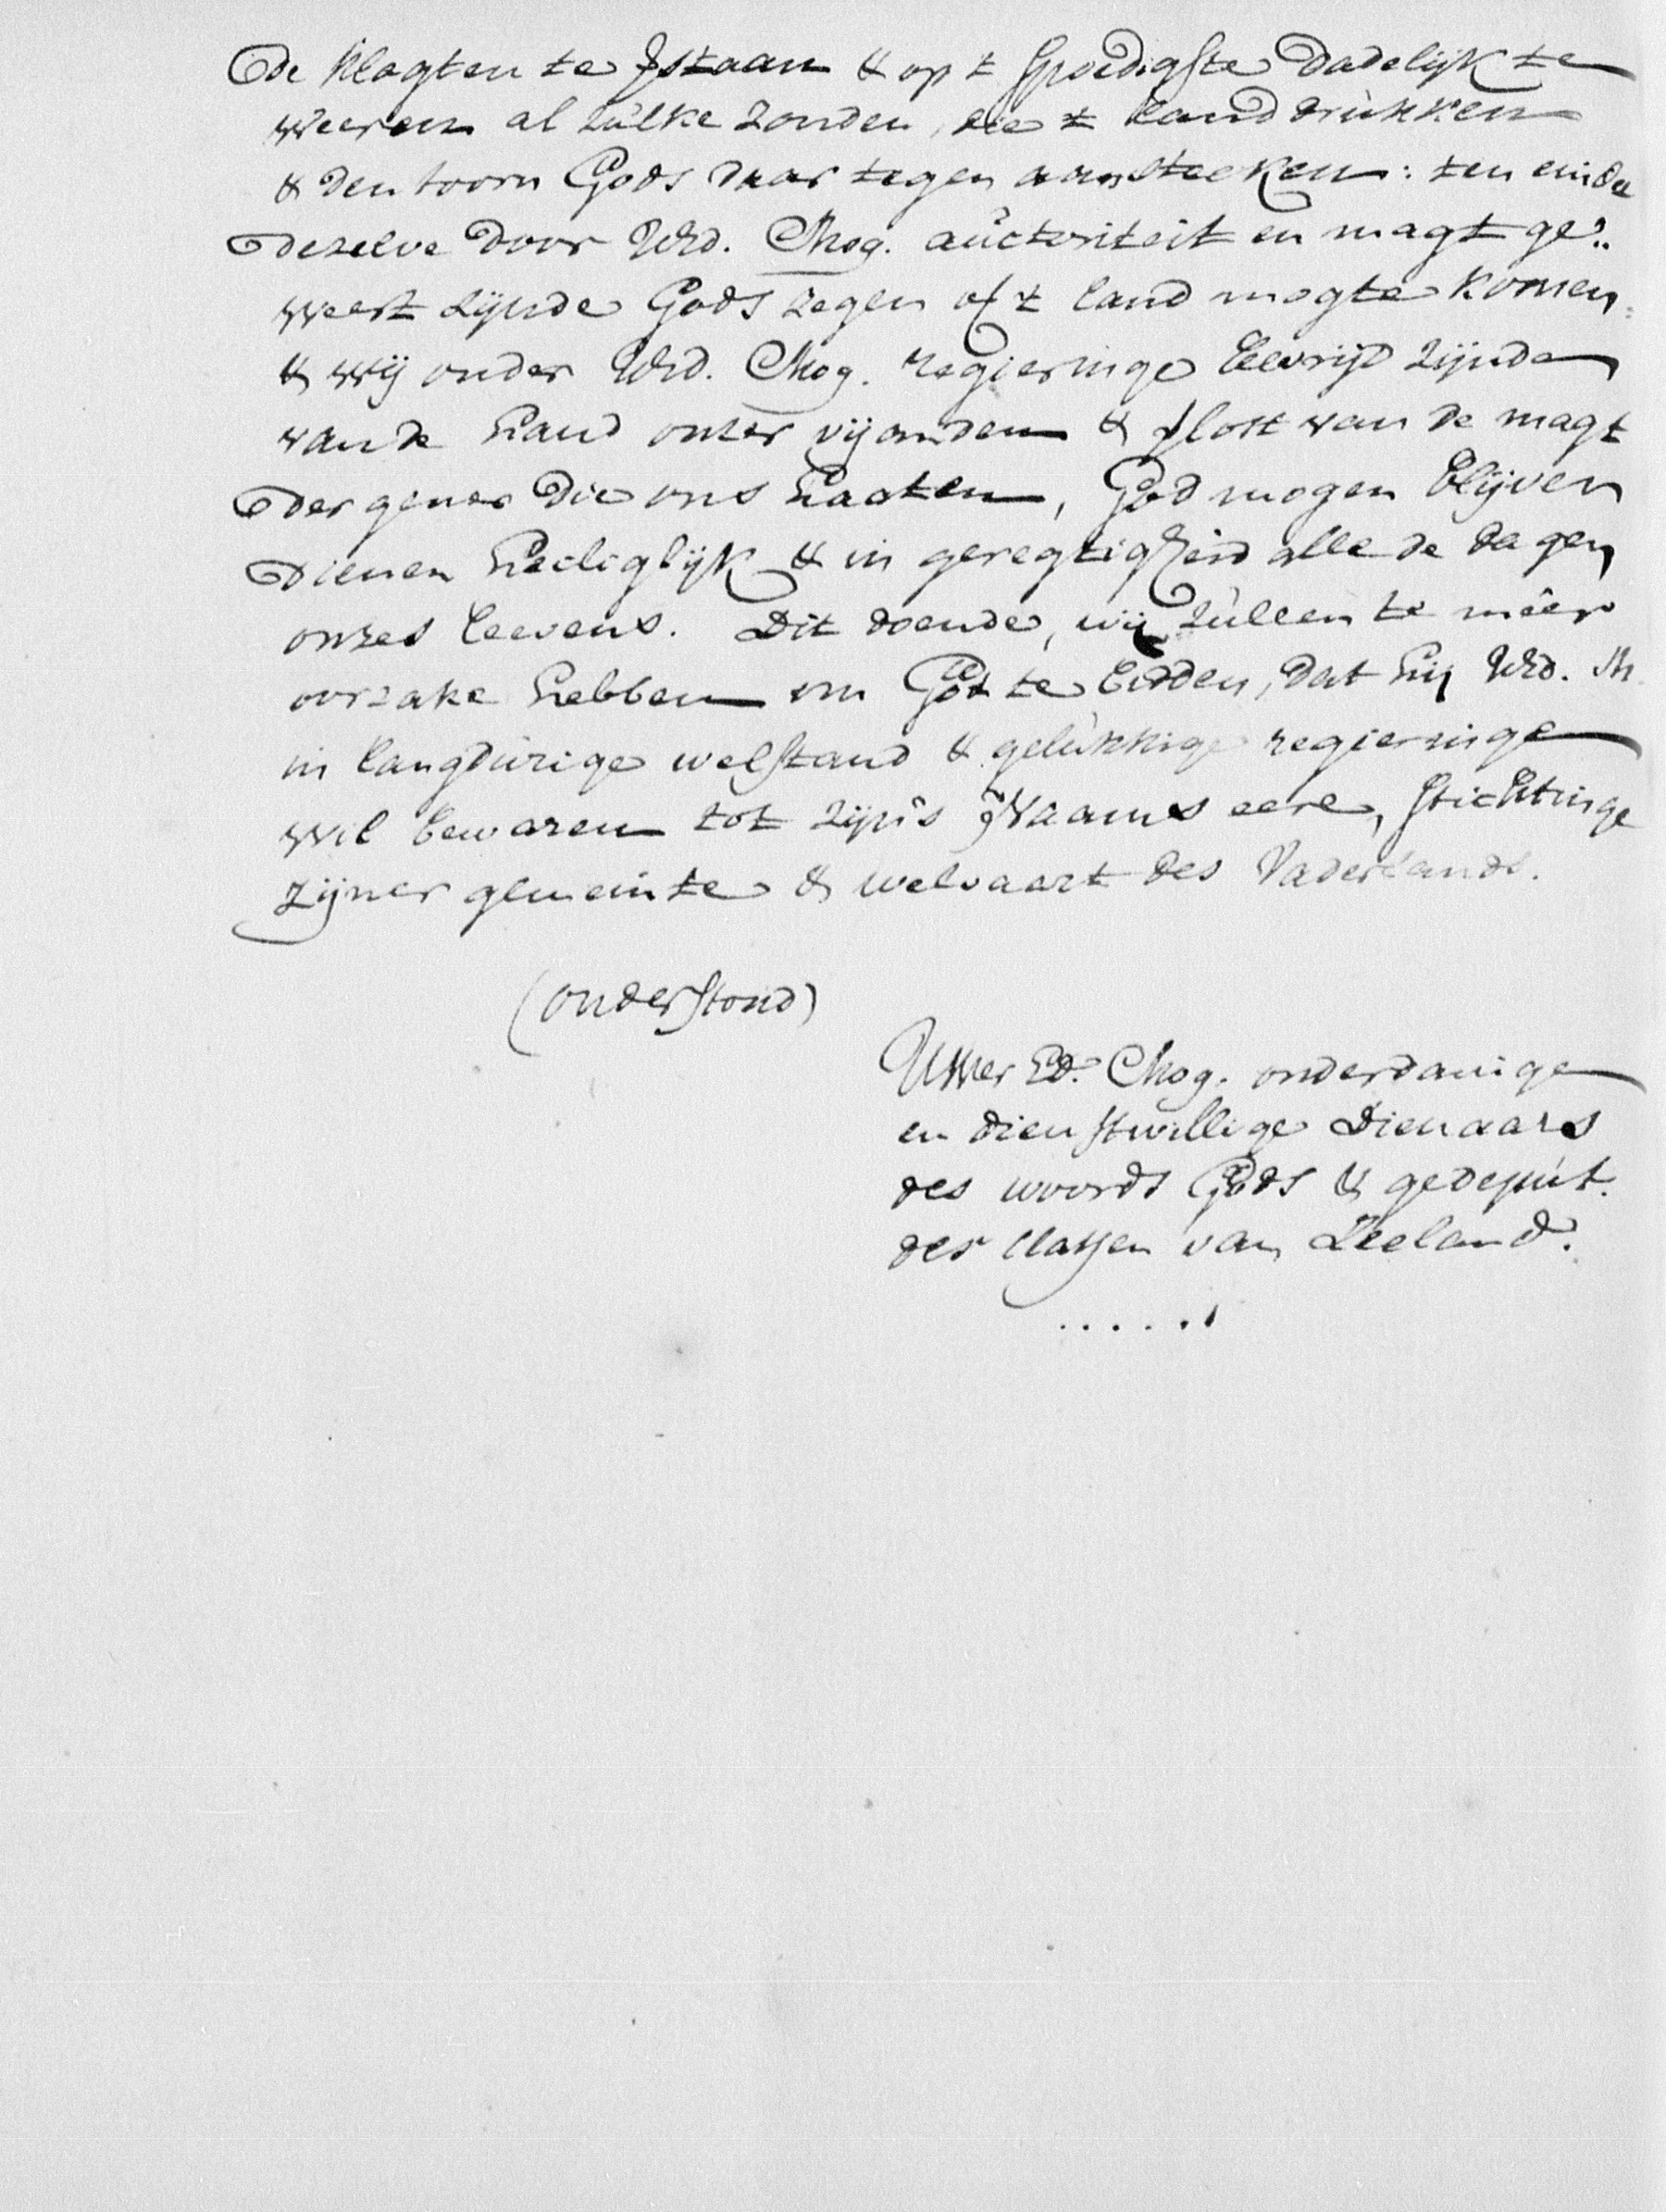 de klagten te ſtaan & op t ſpoedigſte dadelijk te
weeren al zulke zonden, die t land drukken
& den toorn Gods daar tegen aansteeken: ten einde
dezelve door UEd. Mog. auctoriteit en magt ge-
weert zijnde Gods zegen op t land mogte komen:
& wij onder UEd. Mog. regieringe bevrijd zijnde
van de hand onzer vijanden & verlost van de magt
der gener die ons haaten, God mogen blijven
dienen heiliglijk & in geregtigheid alle de dagen
onzes leevens. Dit doende, wij zullen te meer
oorzake hebben om God te bidden, dat hij UEd. M.
in langdurige welſtand & gelukkige regieringe
wil bewaren tot zijn's Naams eere, ſtichtinge
zijner gemeinte & welvaart des Vaderlands.
(onderſtond)
UWer Ed. Mog. onderdanige
en dienſtwillige Dienaars
des woords Gods & gedeput.
der Claſſen van Zeeland.
......